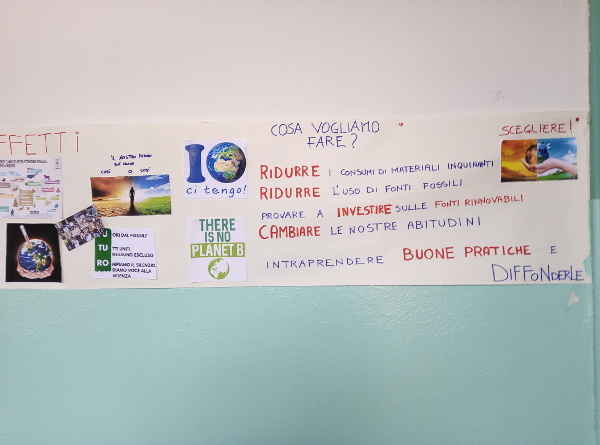 FFETTI
IL NOSTRO
COSÌ O COSÌ
IO
ci tengo!
FUTURO
ORI DAL FOSSILE
TTI UNITI,
NESSUNO ESCLUSO
MPIAMO IL SILENZIO,
DIAMO VOCE ALLA
SCIENZA
THERE
IS NO
PLANET B
COSA VOGLIAMO
FARE?
RIDURRE I CONSUMI DI MATERIALI INQUINANTI
RIDURRE L'USO DI FONTI FOSSILI
PROVARE A INVESTIRE SULLE FONTI RINNOVABILI
CAMBIARE LE NOSTRE ABITUDINI
INTRAPRENDERE BUONE PRATICHE E
DIFFONDERLE
SCEGLIERE!